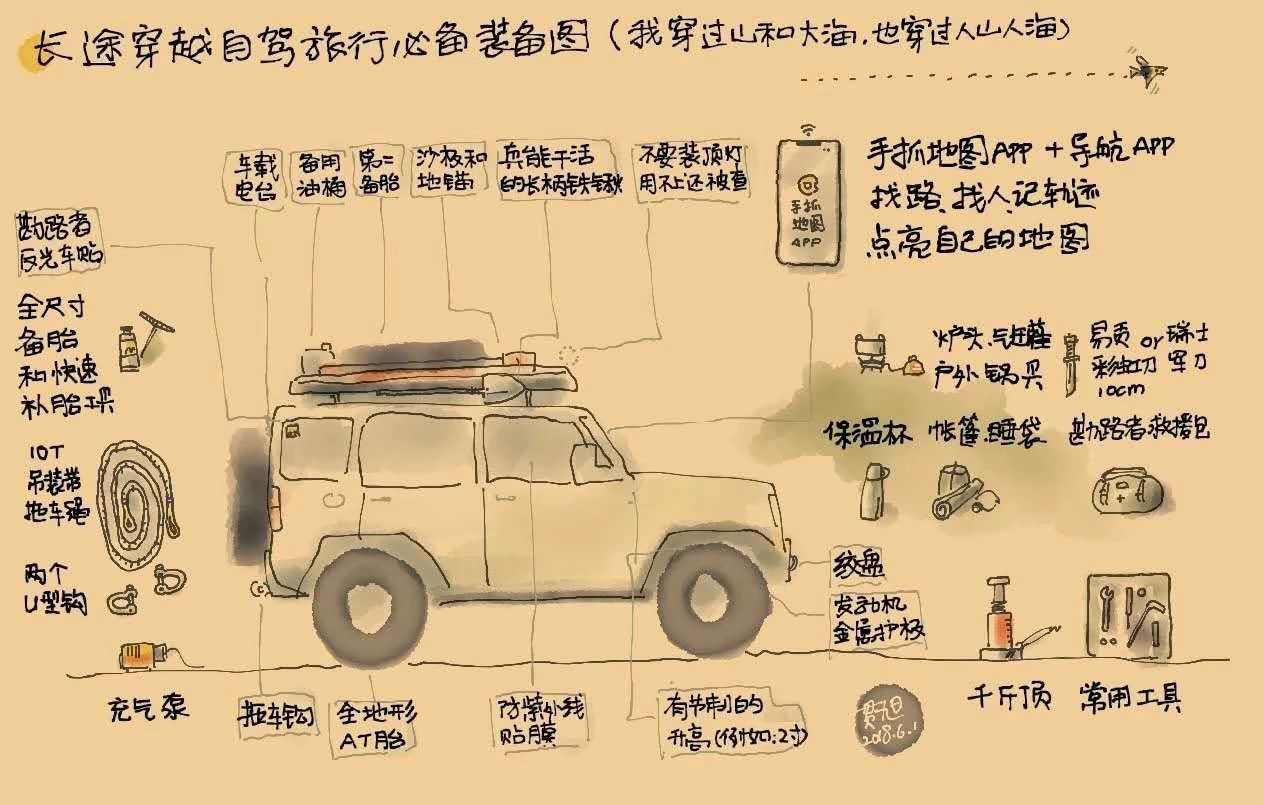 长途穿越自驾旅行必备装备图(我穿过山和大海,也穿过人山人海)
车载
电台
备用
油桶
第二
备胎
沙板和
地锚
真能干活
的长柄铁锹
不要装顶灯
用不上还被查
手抓
地图
APP
手抓地图APP + 导航APP
找路、找人、记轨迹
点亮自己的地图
勘路者
反光车贴
全尺寸
备胎
和快速
补胎工具
10T
吊装带
拖车绳
两个
U型钩
充气泵
炉头、气罐
户外锅具
易贡 or 瑞士
彩虹刀 军刀
10cm
保温杯
帐篷、睡袋
勘路者救援包
绞盘
发动机
金属护板
千斤顶
常用工具
拖车钩
全地形
AT胎
防紫外线
贴膜
有节制的
升高(例如:2寸)
2018.6.1